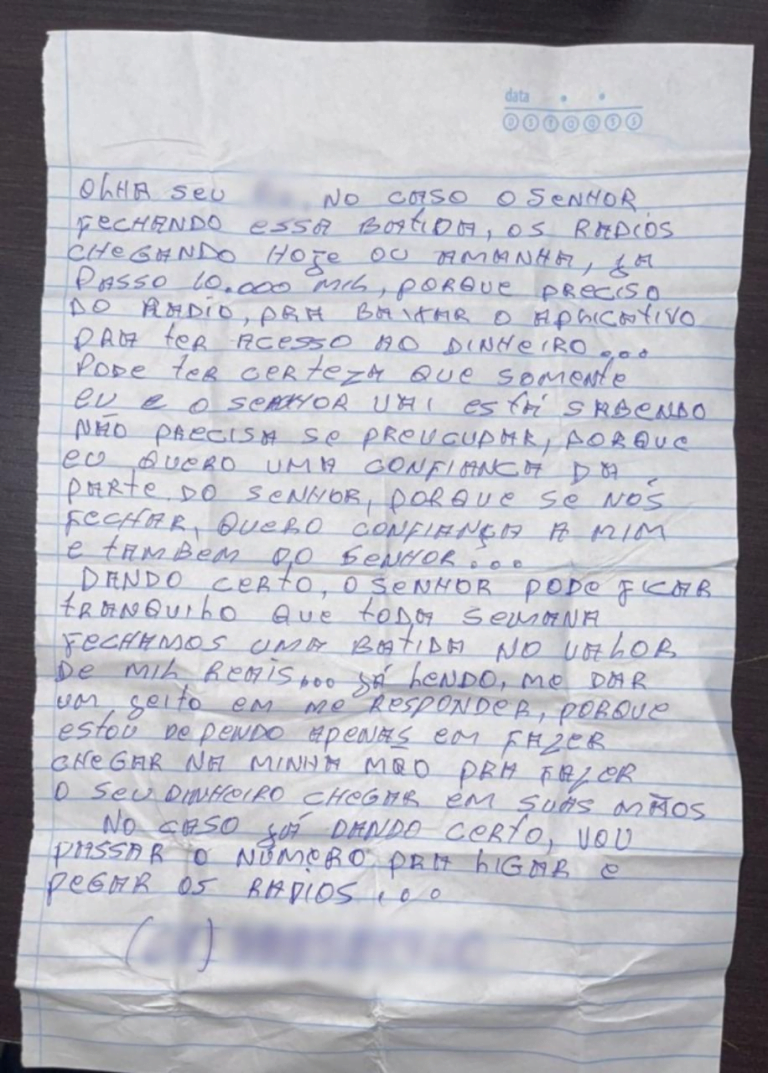 data
D S T Q Q S S
OLHA SEU NO CASO O SENHOR
FECHANDO ESSA BATIDA, OS RADIOS
CHEGANDO HOJE OU AMANHA, JA
PASSO 10.000 MIL, PORQUE PRECISO
DO RADIO, PRA BAIXAR O APLICATIVO
PRA TER ACESSO AO DINHEIRO...
PODE TER CERTEZA QUE SOMENTE
EU E O SENHOR VAI ESTÁ SABENDO
NÃO PRECISA SE PREUCUPAR, PORQUE
EU QUERO UMA CONFIANCA DA
PARTE DO SENHOR, PORQUE SE NOS
FECHAR, QUERO CONFIANÇA A MIM
E TAMBEM DO SENHOR...
DANDO CERTO, O SENHOR PODE FICAR
TRANQUILO QUE TODA SEMANA
FECHAMOS UMA BATIDA NO VALOR
DE MIL REAIS... JÁ LENDO, ME DAR
UM JEITO EM ME RESPONDER, PORQUE
ESTOU DEPENDO APENAS EM FAZER
CHEGAR NA MINHA MÃO PRA FAZER
O SEU DINHEIRO CHEGAR EM SUAS MÃOS
NO CASO JÁ DANDO CERTO, VOU
PASSAR O NÚMERO PRA LIGAR E
PEGAR OS RADIOS...